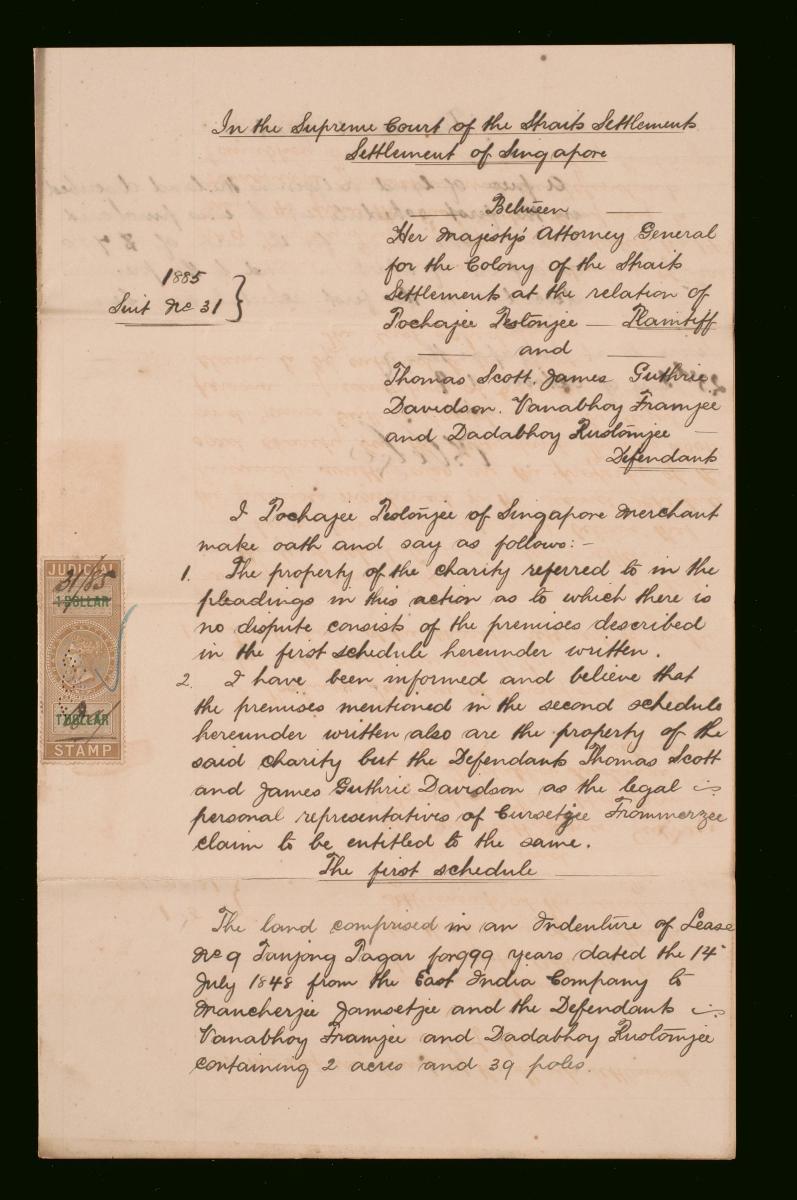 In the Supreme Court of the Straits Settlements
Settlement of Singapore
Between
Her Majesty's Attorney General
for the Colony of the Straits
1885
Settlements at the relation of
Suit No 31
Pochajee Pestonjee — Plaintiff
and
Thomas Scott, James Guthrie
Davidson. Vanabhoy Framjee
and Dadabhoy Rustomjee —
Defendants
I Pochajee Pestonjee of Singapore Merchant
make oath and say as follows:-
1. The property of the charity referred to in the
pleadings in this action as to which there is
no dispute consists of the premises described
in the first schedule hereunder written.
2. I have been informed and believe that
the premises mentioned in the second schedule
hereunder written also are the property of the
said charity but the Defendants Thomas Scott
and James Guthrie Davidson as the legal
personal representatives of Cursetjee Frommerzee
claim to be entitled to the same.
The first schedule
The land comprised in an Indenture of Lease
No 9 Tanjong Pagar for 999 years dated the 14
July 1848 from the East India Company to
Mancherjee Jamsetjee and the Defendants
Vanabhoy Framjee and Dadabhoy Rustomjee
containing 2 acres and 39 poles.
JUDICIAL
31/85
1 DOLLAR
1 DOLLAR
STAMP